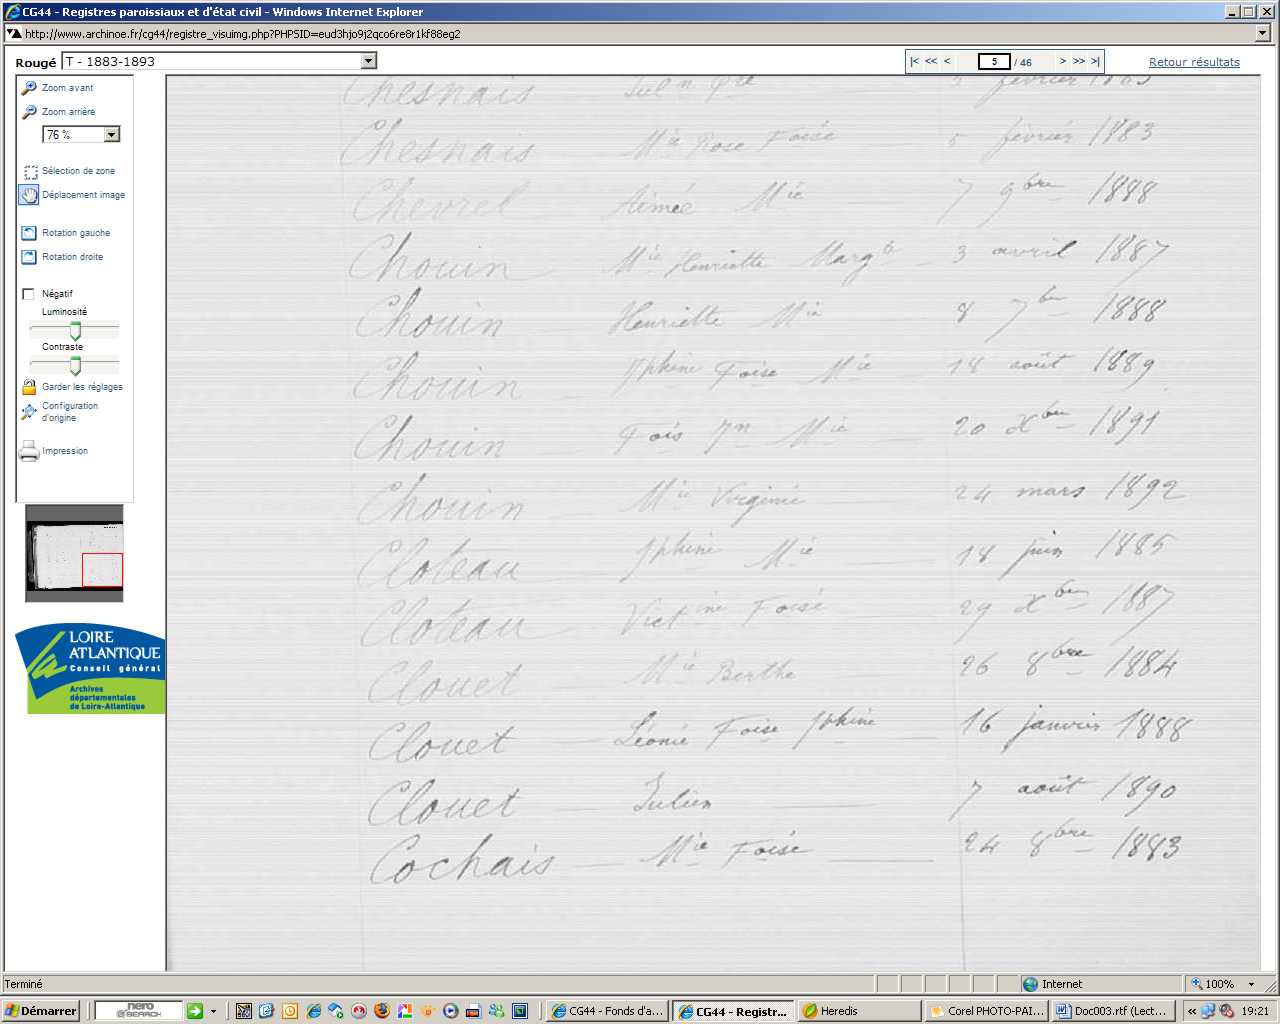 CG44 - Registres paroissiaux et d'état civil - Windows Internet Explorer
http://www.archinoe.fr/cg44/registre_visuimg.php?PHPSID=eud3hjo9j2qco6re8r1kf88eg2
Rougé T - 1883-1893
|< << < 5 / 46 > >> >|
Retour résultats
Zoom avant
Zoom arrière
76 %
Sélection de zone
Déplacement image
Rotation gauche
Rotation droite
Négatif
Luminosité
Contraste
Garder les réglages
Configuration
d'origine
Impression
LOIRE
ATLANTIQUE
Conseil général
Archives
départementales
de Loire-Atlantique
Chesnais février
Chesnais Mie Rose Foise 5 février 1883
Chevrel Aimée Mie 7 9bre 1888
Chouin Mie Henriette Margte 3 avril 1887
Chouin Henriette Mie 8 7bre 1888
Chouin Jphine Foise Mie 18 août 1889
Chouin Fois Jn Mie 20 Xbre 1891
Chouin Mie Virginie 24 mars 1892
Cloteau Jphine Mie 18 juin 1885
Cloteau Victine Foise 29 Xbre 1887
Clouet Mie Berthe 26 8bre 1884
Clouet Léonie Foise Jphine 16 janvier 1888
Clouet Julien 7 août 1890
Cochais Mie Foise 24 8bre 1883
Terminé Internet 100%
Démarrer nero SEARCH CG44 - Fonds d'a... CG44 - Registr... Heredis Corel PHOTO-PAI... Doc003.rtf (Lect... « 19:21